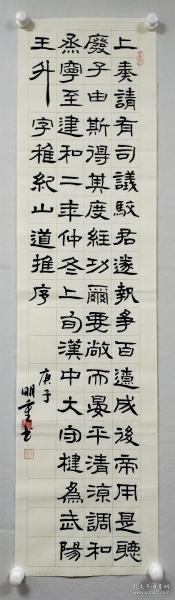 上奏請有司議駮君遂執争百遼咸後帝用是聽
廢子由斯得其度經功爾要敞而晏平清涼調和
烝寧至建和二年仲冬上旬漢中大守楗為武陽
王升字稚紀山道推序
庚子
明